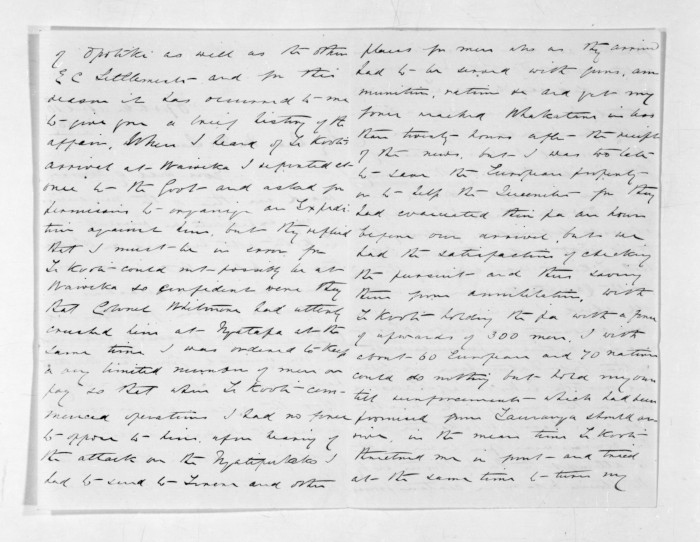 of Opotiki as well as the other
E C Settlements and for this
reason it has occurred to me
to give you a brief history of the
affair. When I heard of Te Kooti's
arrival at Waioeka I reported it at
once to the Govt and asked for
permission to organize an Expedi
tion against him, but they replied
that I must be in error for
Te Kooti could not possibly be at
Waioeka so confident were they
that Colonel Whitmore had utterly
crushed him at Ngatapa at the
same time I was ordered to keep
a very limited number of men on
pay so that when Te Kooti com-
menced operations I had no force
to oppose to him. upon hearing of
the attack on the Ngatipukeko I
had to send to and other
places for men who as they arrived
had to be served with guns, am
munition, rations &c and yet my
force reached Whakatane in less
than twenty hours after the receipt
of the news, but I was too late
to save the European property
or to help the for they
had evacuated their pa an hour
before our arrival, but we
had the satisfaction of checking
the pursuit and thus saving
them from annihilation. With
Te Kooti holding the pa with a force
of upwards of 300 men, I with
about 60 Europeans and 70 natives
could do nothing but hold my own
till reinforcements which had been
promised from Tauranga should arr
ive, in the mean time Te Kooti
threatened me in front and tried
at the same time to turn my